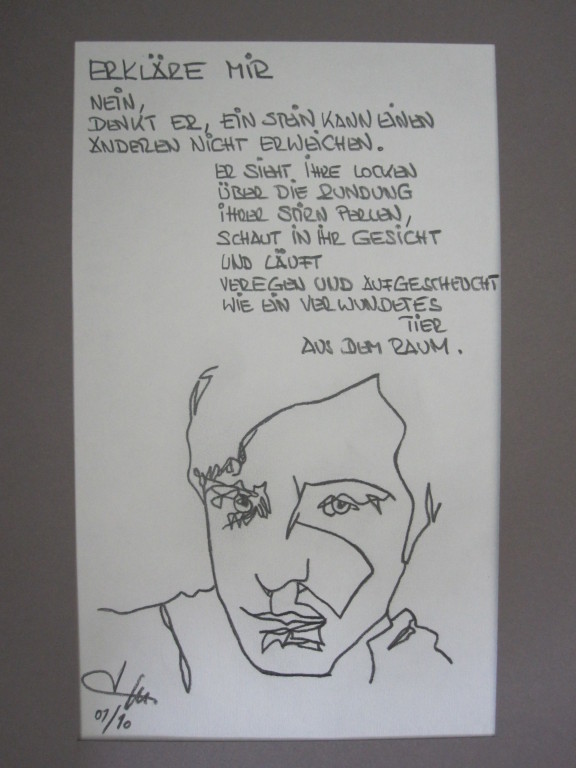 ERKLÄRE MIR
NEIN,
DENKT ER, EIN STEIN KANN EINEN
ANDEREN NICHT ERWEICHEN.
ER SIEHT IHRE LOCKEN
ÜBER DIE RUNDUNG
IHRER STIRN PERLEN,
SCHAUT IN IHR GESICHT
UND LÄUFT
VEREGEN UND AUFGESCHEUCHT
WIE EIN VERWUNDETES
TIER
AUS DEM RAUM.
01/10